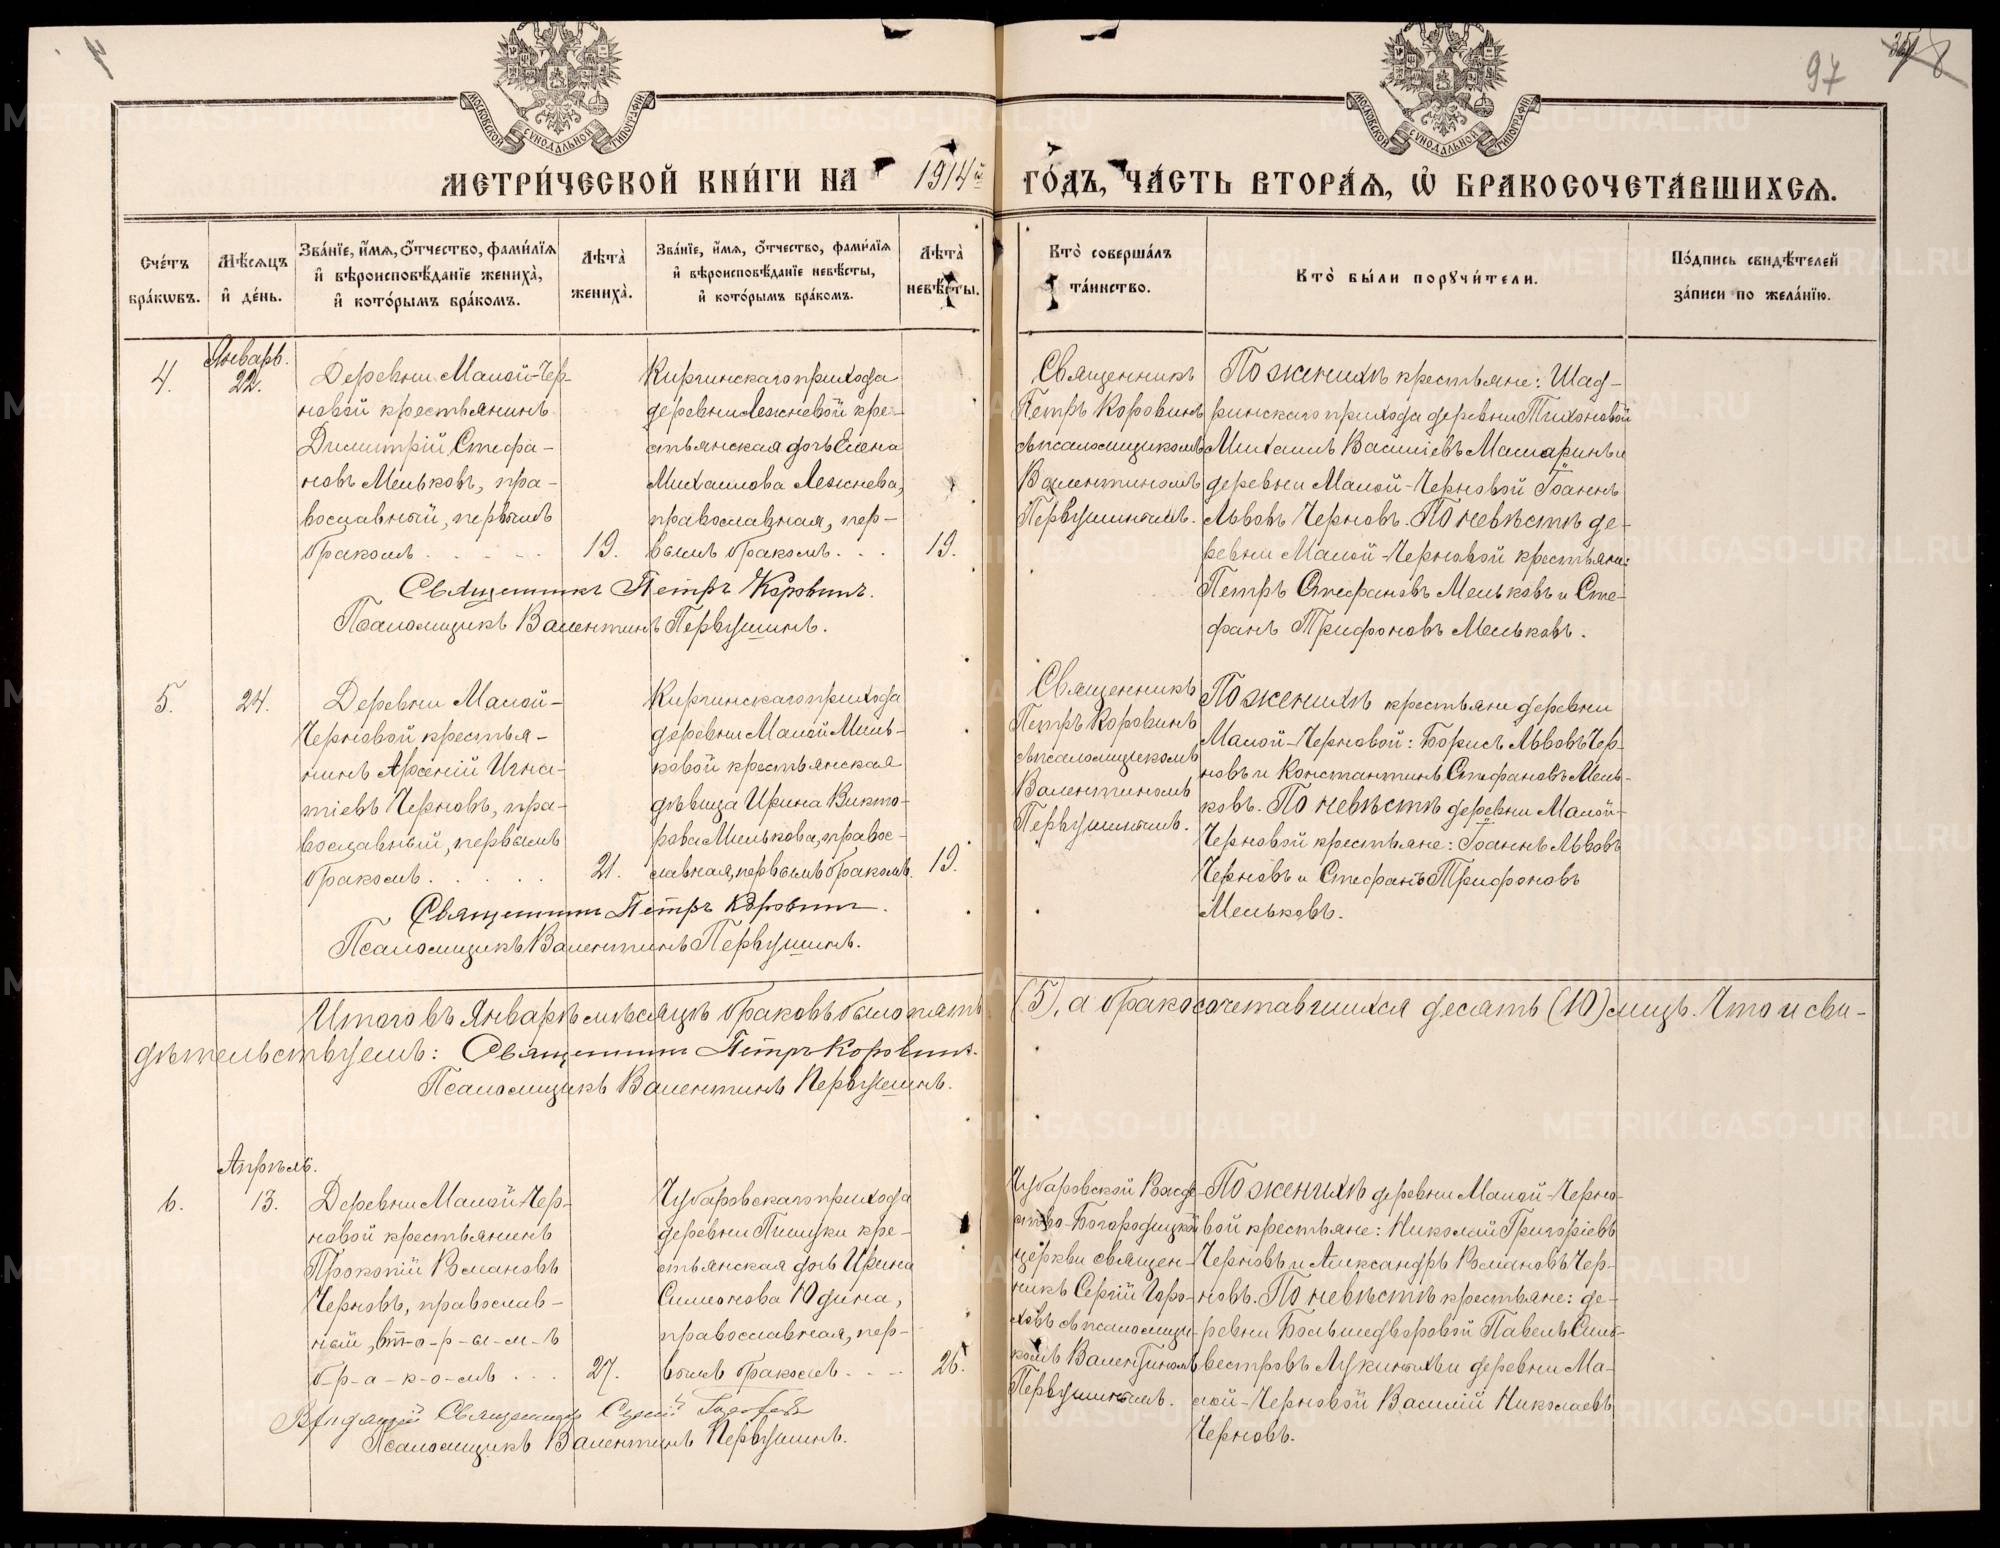 97
МОСКОВСКОЙ СѴНОДАЛЬНОЙ ТИПОГРАФІИ
МОСКОВСКОЙ СѴНОДАЛЬНОЙ ТИПОГРАФІИ
МЕТРИ́ЧЕСКОЙ КНИ́ГИ НА 1914й ГО́ДЪ, ЧА́СТЬ ВТОРА́Ѧ, Ѡ҆ БРАКОСОЧЕТА́ВШИХСѦ.
Сче́тъ бра́кѡвъ.
Мѣ́сѧцъ и҆ де́нь.
Зва́нїе, и҆́мѧ, ѻ҆́тчество, фами́лїѧ
и҆ вѣроисповѣ́данїе жениха̀,
и҆ кото́рымъ бра́комъ.
Лѣ́та̀ жениха̀.
Зва́нїе, и҆́мѧ, ѻ҆́тчество, фами́лїѧ
и҆ вѣроисповѣ́данїе невѣ́сты,
и҆ кото́рымъ бра́комъ.
Лѣ́та̀ невѣ́сты.
Кто̀ соверша́лъ
та́инство.
Кто̀ бы́ли порꙋчи́тели.
По́дпись свидѣ́телей
за́писи по жела́нїю.
4.
Январь.
22.
Деревни Малой-Чер-
новой крестьянинъ
Димитрій Стефа-
новъ Мельковъ, пра-
вославный, первымъ
бракомъ . . . . .
19.
Киргинскаго прихода
деревни Лежневой кре-
стьянская дочь Елена
Михаилова Лежнева,
православная, пер-
вымъ бракомъ. . .
19.
Священникъ
Петръ Коровинъ
съ псаломщикомъ
Валентиномъ
Первушинымъ.
По женихѣ крестьяне: Шад-
ринскаго прихода деревни Тихоновой
Михаилъ Василіевъ Машаринъ и
деревни Малой-Черновой Іоаннъ
Львовъ Черновъ. По невѣстѣ де-
ревни Малой-Черновой крестьяне:
Петръ Стефановъ Мельковъ и Сте-
фанъ Трифоновъ Мельковъ.
Священникъ Петръ Коровинъ.
Псаломщикъ Валентинъ Первушинъ.
5.
24.
Деревни Малой-
Черновой крестья-
нинъ Арсеній Игна-
тіевъ Черновъ, пра-
вославный, первымъ
бракомъ. . . . .
21.
Киргинскаго прихода
деревни Малой Миль-
ковой крестьянская
дѣвица Ирина Викто-
рова Милькова, правос-
лавная, первымъ бракомъ.
19.
Священникъ
Петръ Коровинъ
съ псаломщикомъ
Валентиномъ
Первушинымъ.
По женихѣ крестьяне деревни
Малой-Черновой: Борисъ Львовъ Чер-
новъ и Константинъ Стефановъ Мель-
ковъ. По невѣстѣ деревни Малой-
Черновой крестьяне: Іоаннъ Львовъ
Черновъ и Стефанъ Трифоновъ
Мельковъ.
Священникъ Петръ Коровинъ.
Псаломщикъ Валентинъ Первушинъ.
Итого въ Январѣ мѣсяцѣ браковъ было пять (5), а бракосочетавшихся десять (10) лицъ. Что и сви-
дѣтельствуемъ: Священникъ Петръ Коровинъ.
Псаломщикъ Валентинъ Первушинъ.
6.
Апрѣль.
13.
Деревни Малой Чер-
новой крестьянинъ
Прокопій Романовъ
Черновъ, православ-
ный, вт-о-р-ы-м-ъ
б-р-а-к-о-мъ . . .
27.
Чубаровскаго прихода
деревни Пишуки кре-
стьянская дочь Ирина
Симеонова Юдина,
православная, пер-
вымъ бракомъ. . . .
26.
Чубаровской Рожде-
ство-Богородицкой
церкви священ-
никъ Сергій Горо-
ховъ съ псаломщи-
комъ Валентиномъ
Первушинымъ.
По женихѣ деревни Малой-Черно-
вой крестьяне: Николай Григоріевъ
Черновъ и Александръ Романовъ Чер-
новъ. По невѣстѣ крестьяне: де-
ревни Большедворовой Павелъ Силь-
вестровъ Лукиныхъ и деревни Ма-
лой-Черновой Василій Николаевъ
Черновъ.
Священникъ Сергій
Псаломщикъ Валентинъ Первушинъ.
METRIKI.GASO-URAL.RU